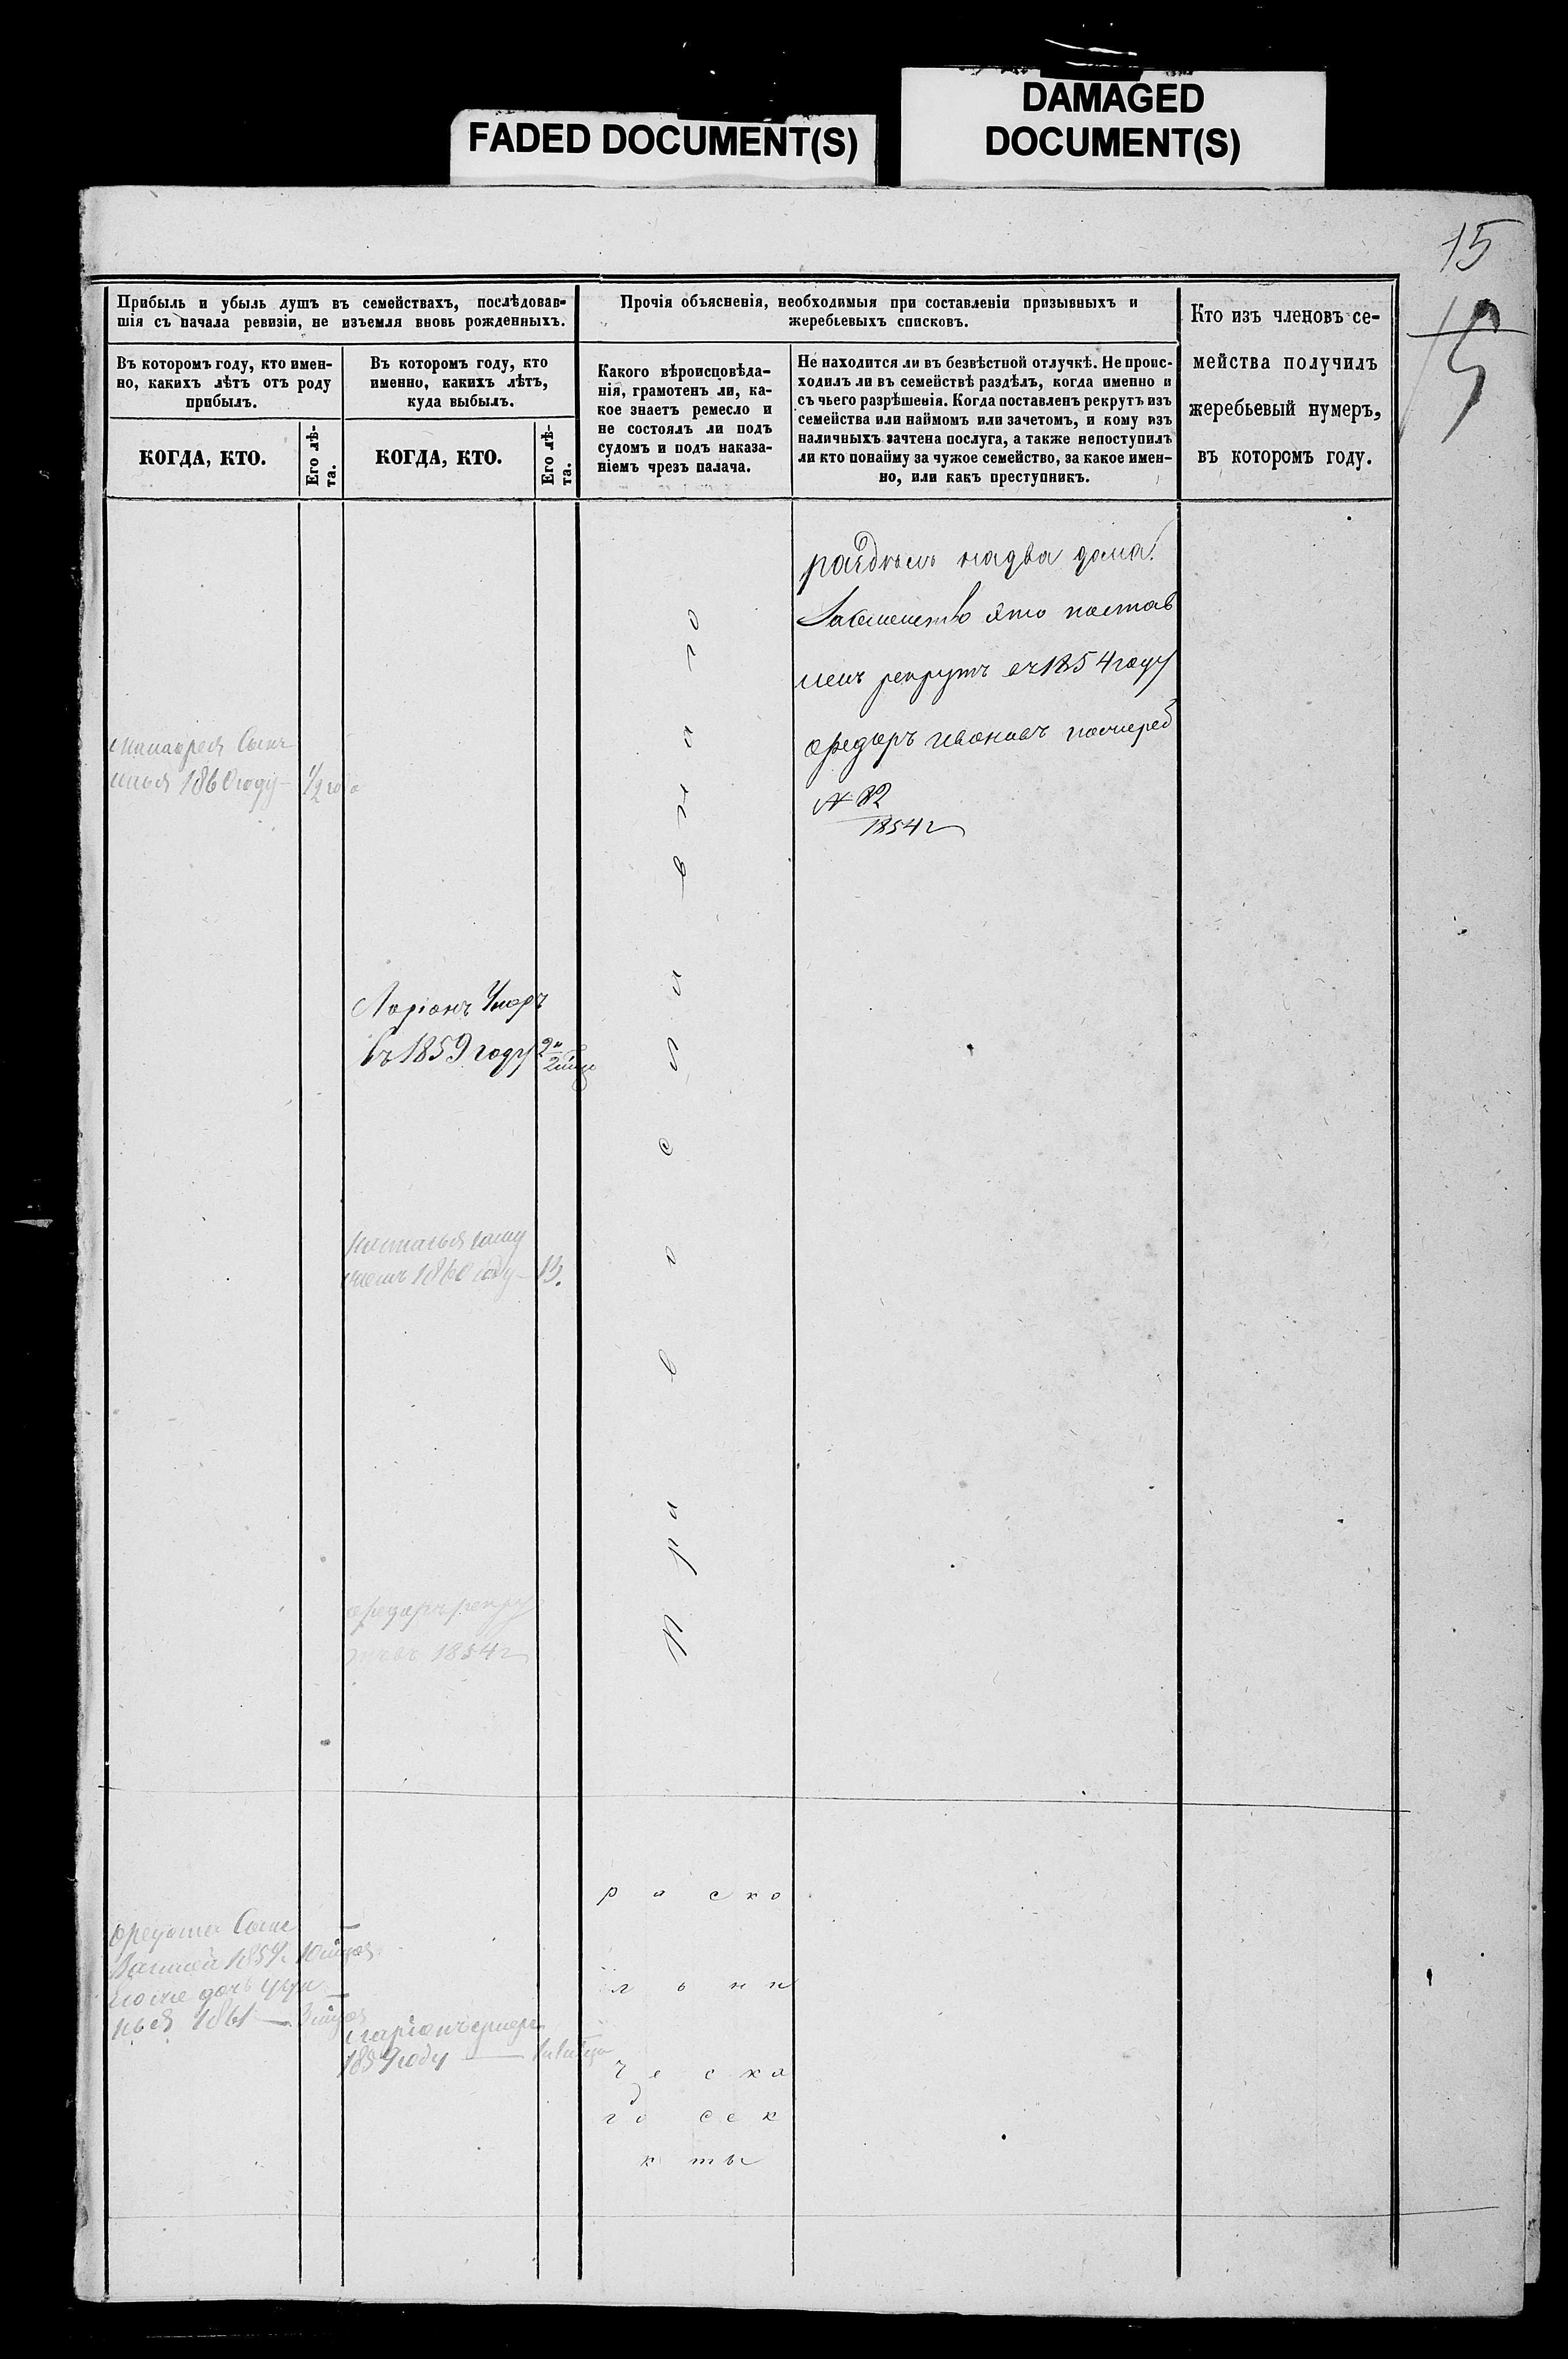 FADED DOCUMENT(S)
DAMAGED
DOCUMENT(S)
15
15
Прибыль и убыль душъ въ семействахъ, послѣдовав-
шія съ начала ревизіи, не изъемля вновь рожденныхъ.
Прочія объясненія, необходимыя при составленіи призывныхъ и
жеребьевыхъ списковъ.
Кто изъ членовъ се-
мейства получилъ
жеребьевый нумеръ,
въ которомъ году.
Въ которомъ году, кто имен-
но, какихъ лѣтъ отъ роду
прибылъ.
Въ которомъ году, кто
именно, какихъ лѣтъ,
куда выбылъ.
Какого вѣроисповѣда-
нія, грамотенъ ли, ка-
кое знаетъ ремесло и
не состоялъ ли подъ
судомъ и подъ наказа-
ніемъ чрезъ палача.
Не находится ли въ безвѣстной отлучкѣ. Не проис-
ходилъ ли въ семействѣ раздѣлъ, когда именно и
съ чьего разрѣшенія. Когда поставленъ рекрутъ изъ
семейства или наймомъ или зачетомъ, и кому изъ
наличныхъ зачтена послуга, а также непоступилъ
ли кто понайму за чужое семейство, за какое имен-
но, или какъ преступникъ.
КОГДА, КТО.
Его лѣ-
та.
КОГДА, КТО.
Его лѣ-
та.
надва дома.
постав
ленъ рекрутъ въ 1854 году
Федоръ Ивановъ
№ 82
1854 г
Сынъ
1860 году 1/2 года
Ларіонъ Умеръ
Въ 1859 году
1860 году 13.
Православнаго
Федоръ рекру
1854 г
Федота Сынъ
дочь
1861
Ларіонъ умеръ
1859 году
раско
льни
ческа
го сек
к ты